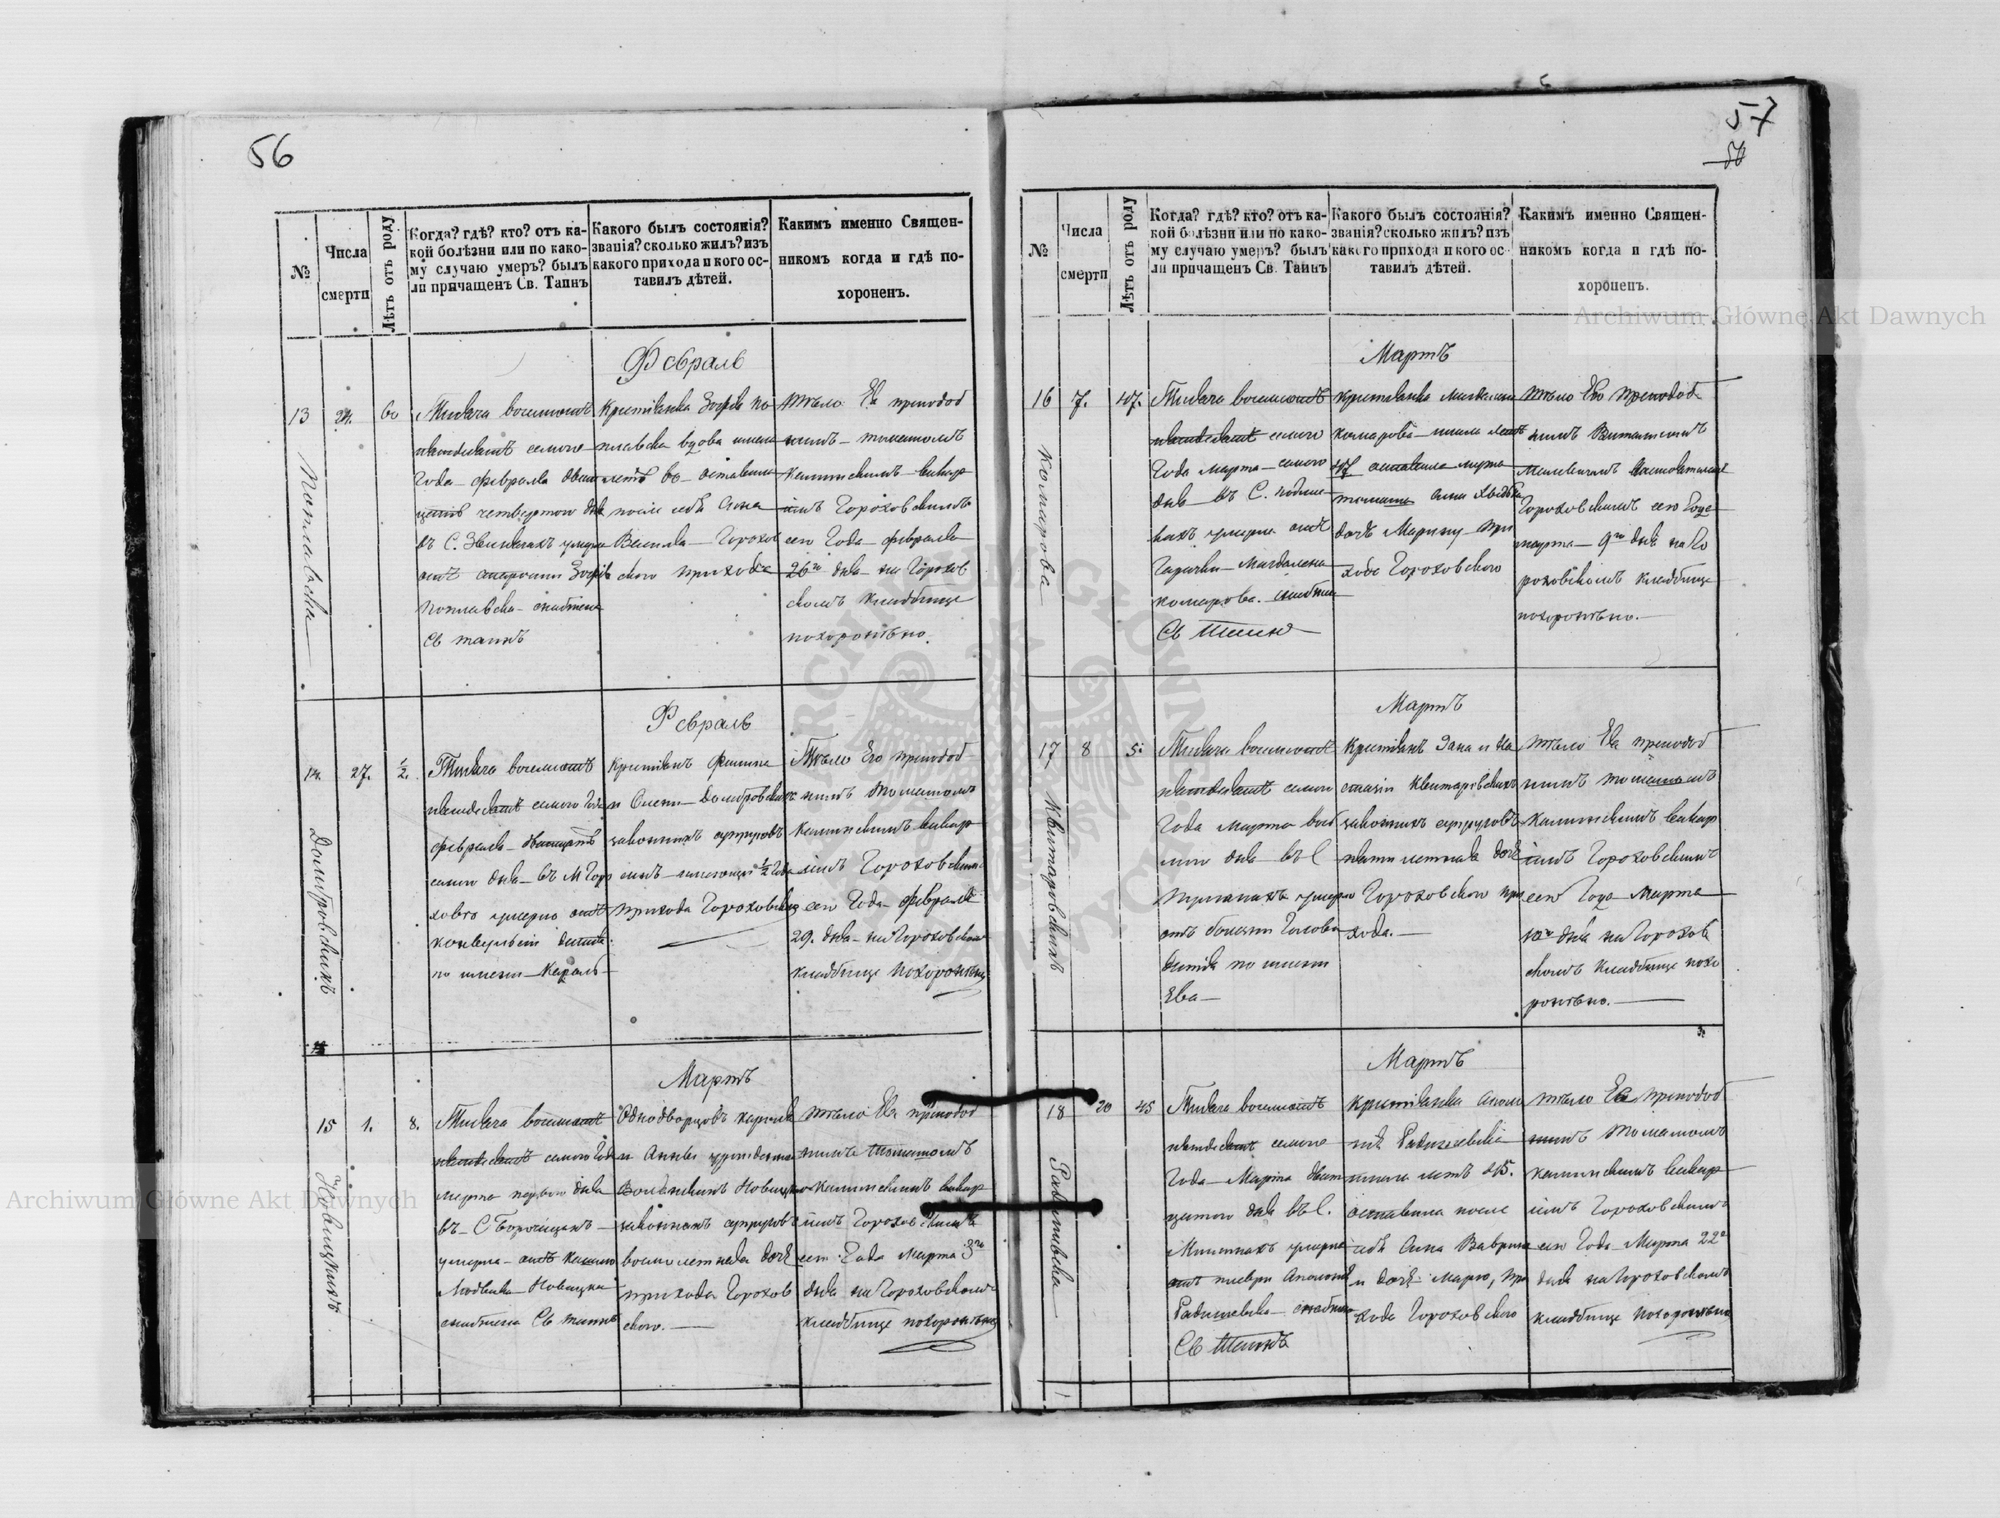 56
№
Числа
смерти
Лѣтъ отъ роду
Когда? гдѣ? кто? отъ ка-
кой болѣзни или по како-
му случаю умеръ? былъ
ли причащенъ Св. Таинъ
Какого былъ состоянія?
званія? сколько жилъ? изъ
какого прихода и кого ос-
тавилъ дѣтей.
Какимъ именно Священ-
никомъ когда и гдѣ по-
хороненъ.
Февраль
13
24.
60
Поплавска
Тысяча восемьсотъ
пятьдесятъ седмого
Года февраля двад
цать четвертого дня
въ С. Звинячахъ умерла
отъ старости Зофія
Поплавска
Св таинъ
Крестьянка Зофія По
плавска вдова имела
летъ 60 оставила
после себя Сына
Василя Горохов
ского прихода
Тѣло Ея преподоб
нымъ Томашомъ
Калинскимъ викар
імъ Гороховскимъ
сего Года февраля
26го дня на Горохов
скомъ кладбище
похоронѣно.
Февраль
14.
27.
½.
Домбровскихъ
Тысяча восемьсотъ
пятьдесятъ семого Года
февраля двадцать
семого дня въ М Горо
ховѣ умерло отъ
конвульсіи дитя
по имени Кароль
Крестьянъ
и Олены Домбровскихъ
законныхъ супруговъ
сынъ имеющій ½ Года
прихода Гороховскаго
Тѣло Его преподоб
нымъ Томашомъ
Калинскимъ викар
імъ Гороховскимъ
сего Года февраля
29. дня на Гороховскомъ
кладбище похоронѣно
Мартъ
15
1.
8.
Новицкихъ
Тысяча восемьсотъ
пятьдесятъ семого Года
марта первого дня
въ С
умерла отъ кашлю
Людвика Новицка
Св таинъ
Однодворцовъ Кароля
и Анны урожденной
Новицкихъ
законныхъ супруговъ
восьмилетняя дочь
прихода Горохов
ского.
Тѣло Ея преподоб
нымъ Томашомъ
Калинскимъ викар
імъ Гороховскимъ
сего Года Марта 3го
дня на Гороховскомъ
кладбище похоронѣно
57
№
Числа
смерти
Лѣтъ отъ роду
Когда? гдѣ? кто? отъ ка-
кой болѣзни или по како-
му случаю умеръ? былъ
ли причащенъ Св. Таинъ
Какого былъ состоянія?
званія? сколько жилъ? изъ
какого прихода и кого ос-
тавилъ дѣтей.
Какимъ именно Священ-
никомъ когда и гдѣ по-
хороненъ.
Мартъ
16
7.
47.
Комарова
Тысяча восемьсотъ
пятьдесятъ семого
Года марта семого
дня въ С.
умерла отъ
Горячки Магдалена
Комарова.
Св Таинъ
Крестьянка Магдалена
Комарова имела летъ
47 оставила мужа
дочь Марину при
ходе Гороховского
Тѣло Его преподоб
нымъ
Гороховскимъ сего Года
марта 9го дня на Го
роховскомъ кладбище
похоронѣно.
Мартъ
17
8
5.
Квятаровскихъ
Тысяча восемьсотъ
пятьдесятъ семого
Года марта вось
мого дня въ С
умерло
отъ болезни Головы
дитя по имени
Ева
Крестьянъ Яна и На
стасіи Квятаровскихъ
законныхъ супруговъ
пятилетняя дочь
Гороховского при
хода.
Тѣло Ея преподоб
нымъ Томашомъ
Калинскимъ викар
імъ Гороховскимъ
сего Года Марта
10го дня на Горохов
скомъ кладбище похо
ронѣно.
Мартъ
18
20
45
Тысяча восемьсотъ
пятьдесятъ семого
Года Марта двад
цятого дня въ С.
умерла
отъ плеври Аполонія
Св Таинъ
Крестьянка Аполо
нія
имела летъ 45.
оставила после
себя Сына
и дочь Марію, при
хода Гороховского
Тѣло Ея преподоб
нымъ Томашомъ
Калинскимъ викар
імъ Гороховскимъ
сего Года Марта 22го
дня на Гороховскомъ
кладбище похоронѣно
Archiwum Główne Akt Dawnych
Archiwum Główne Akt Dawnych